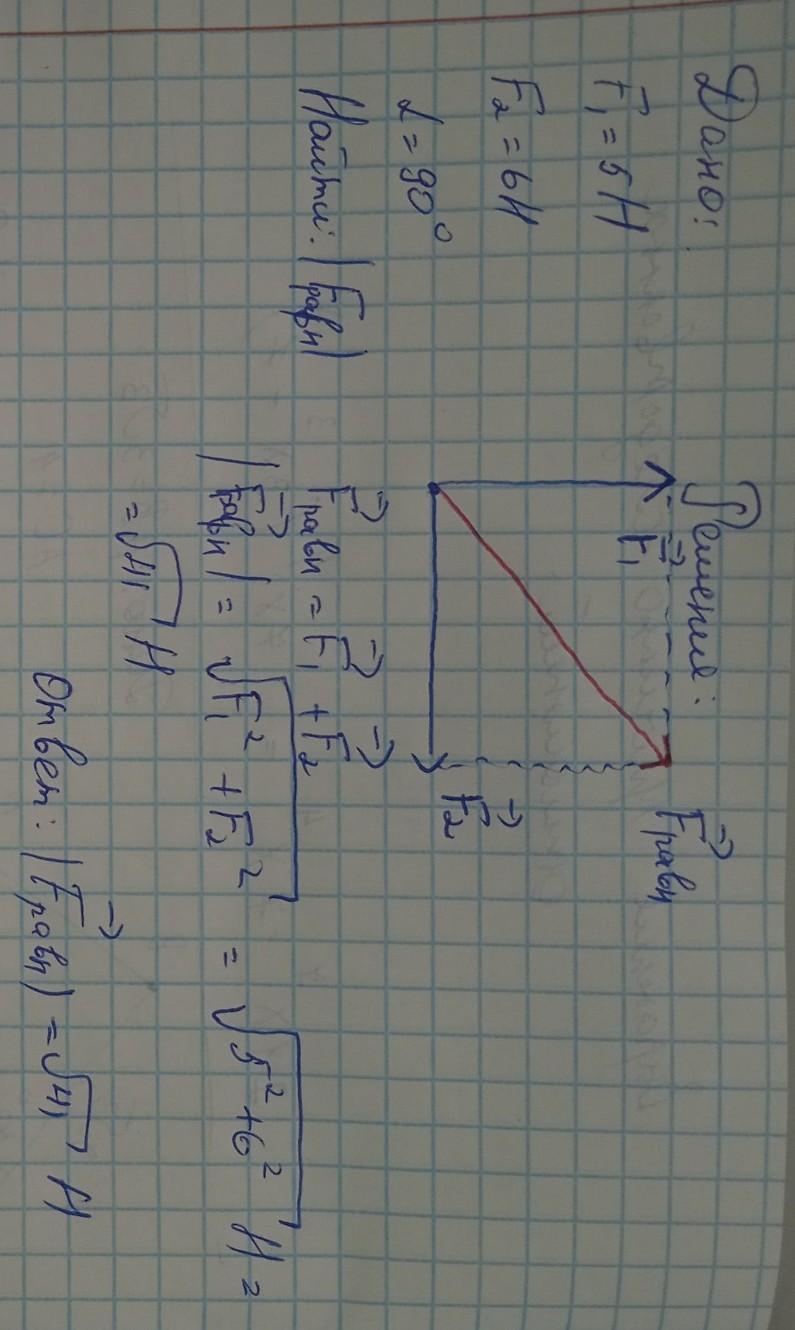 Дано:
F₁ = 5 Н
F₂ = 6 Н
α = 90°
Найти: |Fравн|
Решение:
F⃗₁
F⃗равн
F⃗₂
F⃗равн = F⃗₁ + F⃗₂
|F⃗равн| = √(F₁² + F₂²) = √(5² + 6²) Н =
= √41 Н
Ответ: |F⃗равн| = √41 Н